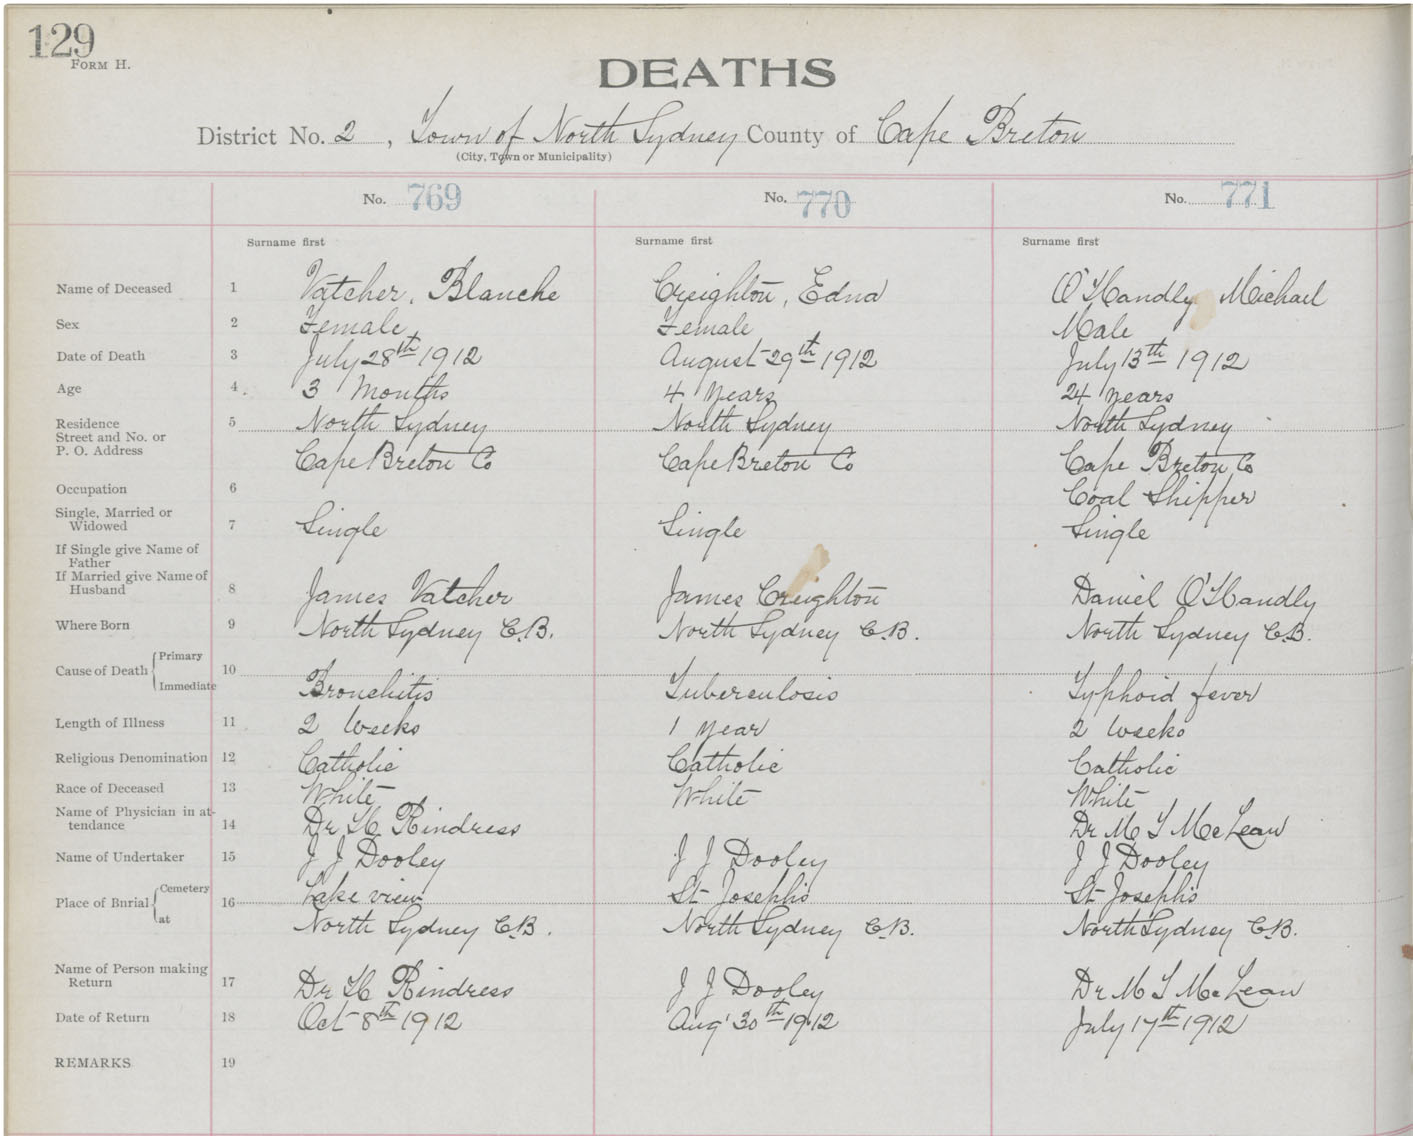 129
FORM H.
DEATHS
District No. 2, Town of North Sydney County of Cape Breton
(City, Town or Municipality)
No. 769 No. 770 No. 771
Surname first Surname first Surname first
Name of Deceased 1 Vatcher, Blanche Creighton, Edna O'Handly Michael
Sex 2 Female Female Male
Date of Death 3 July 28th 1912 August 29th 1912 July 13th 1912
Age 4 3 Months 4 years 24 years
Residence 5 North Sydney North Sydney North Sydney
Street and No. or
P. O. Address Cape Breton Co Cape Breton Co Cape Breton Co
Occupation 6 Coal Shipper
Single, Married or
Widowed 7 Single Single Single
If Single give Name of
Father
If Married give Name of
Husband 8 James Vatcher James Creighton Daniel O'Handly
Where Born 9 North Sydney C.B. North Sydney C.B. North Sydney C.B.
Cause of Death Primary 10
Immediate Bronchitis Tuberculosis Typhoid fever
Length of Illness 11 2 Weeks 1 year 2 Weeks
Religious Denomination 12 Catholic Catholic Catholic
Race of Deceased 13 White White White
Name of Physician in at-
tendance 14 Dr H Rindress Dr M T McLean
Name of Undertaker 15 J J Dooley J J Dooley J J Dooley
Place of Burial Cemetery 16 Lake view St Joseph's St Joseph's
at North Sydney C.B. North Sydney C.B. North Sydney C.B.
Name of Person making
Return 17 Dr H Rindress J J Dooley Dr M T McLean
Date of Return 18 Oct 8th 1912 Aug' 30th 1912 July 17th 1912
REMARKS 19